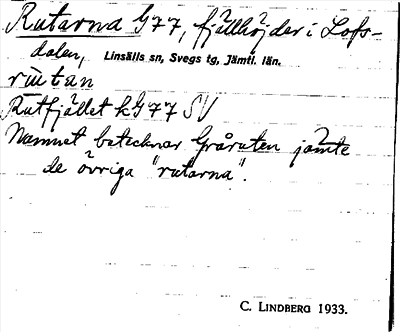 Rutarna kG77, fjällhöjder i Lofs-
dalen, Linsälls sn, Svegs tg, Jämtl. län.
rutan
Rutfjället kG77 SV
Namnet betecknar Gråruten jämte
de övriga "rutarna".
C. LINDBERG 1933.